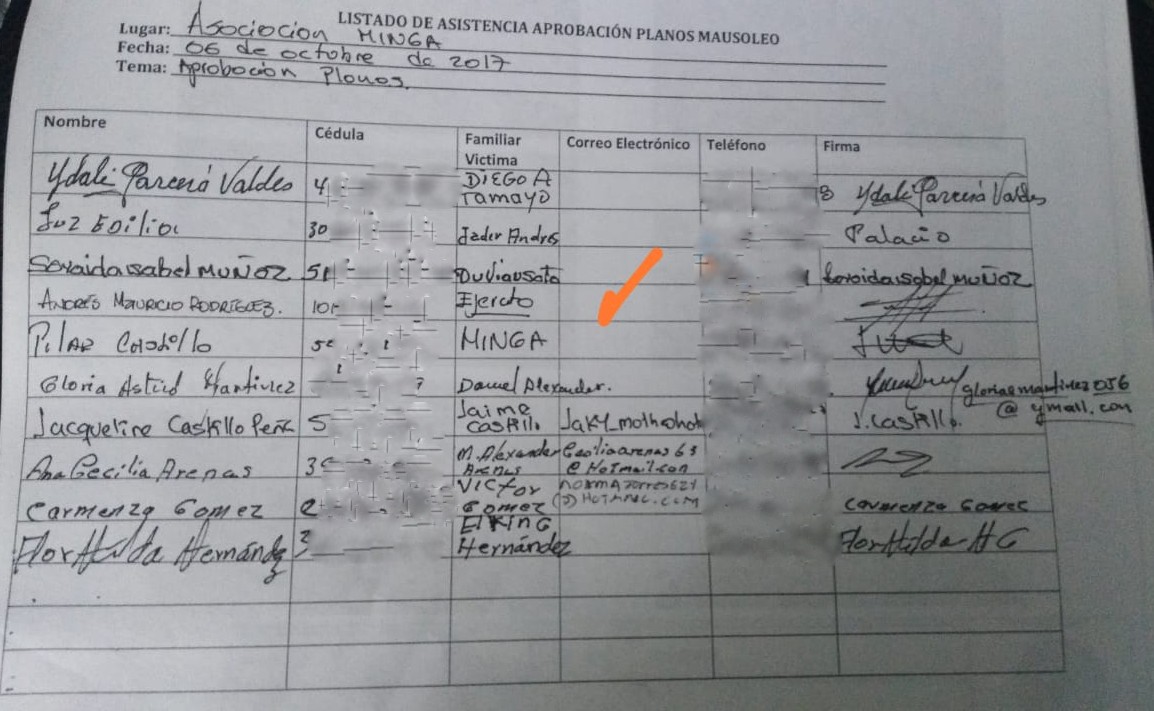 LISTADO DE ASISTENCIA APROBACIÓN PLANOS MAUSOLEO
Lugar: Asociocion MINGA
Fecha: 06 de octubre de 2017
Tema: Aprobocion Plonos.
Nombre Cédula Familiar Victima Correo Electrónico Teléfono Firma
Ydali Parcerá Valdes 4 DIEGO A Tamayo 8 Ydali Parcerá Valdes
Luz Edilia 30 Jader Andres Palacio
Soraidaisabel MUÑOZ 51 Duviansoto 1 Soraidaisabel MUÑOZ
ANDRÉS MAURICIO RODRÍGUEZ. 101 Ejercito
PILAR 5 MINGA
Gloria Astrid Martinez 7 Daniel Alexander. gloriaamartinez056
@ ymall.com
Jacqueline Castillo Peña 5 Jaime Castillo J. Castillo.
Ana Cecilia Arenas 3 M. Alexander Arenas Cecliaarenas63
@ HOTmail.com
Carmenza Gomez 2 Victor Gomez Carmenza Gomez
@ HOTMAIL.COM
Flor Hilda Hernández 3 ELKING Hernández Flor Hilda HG